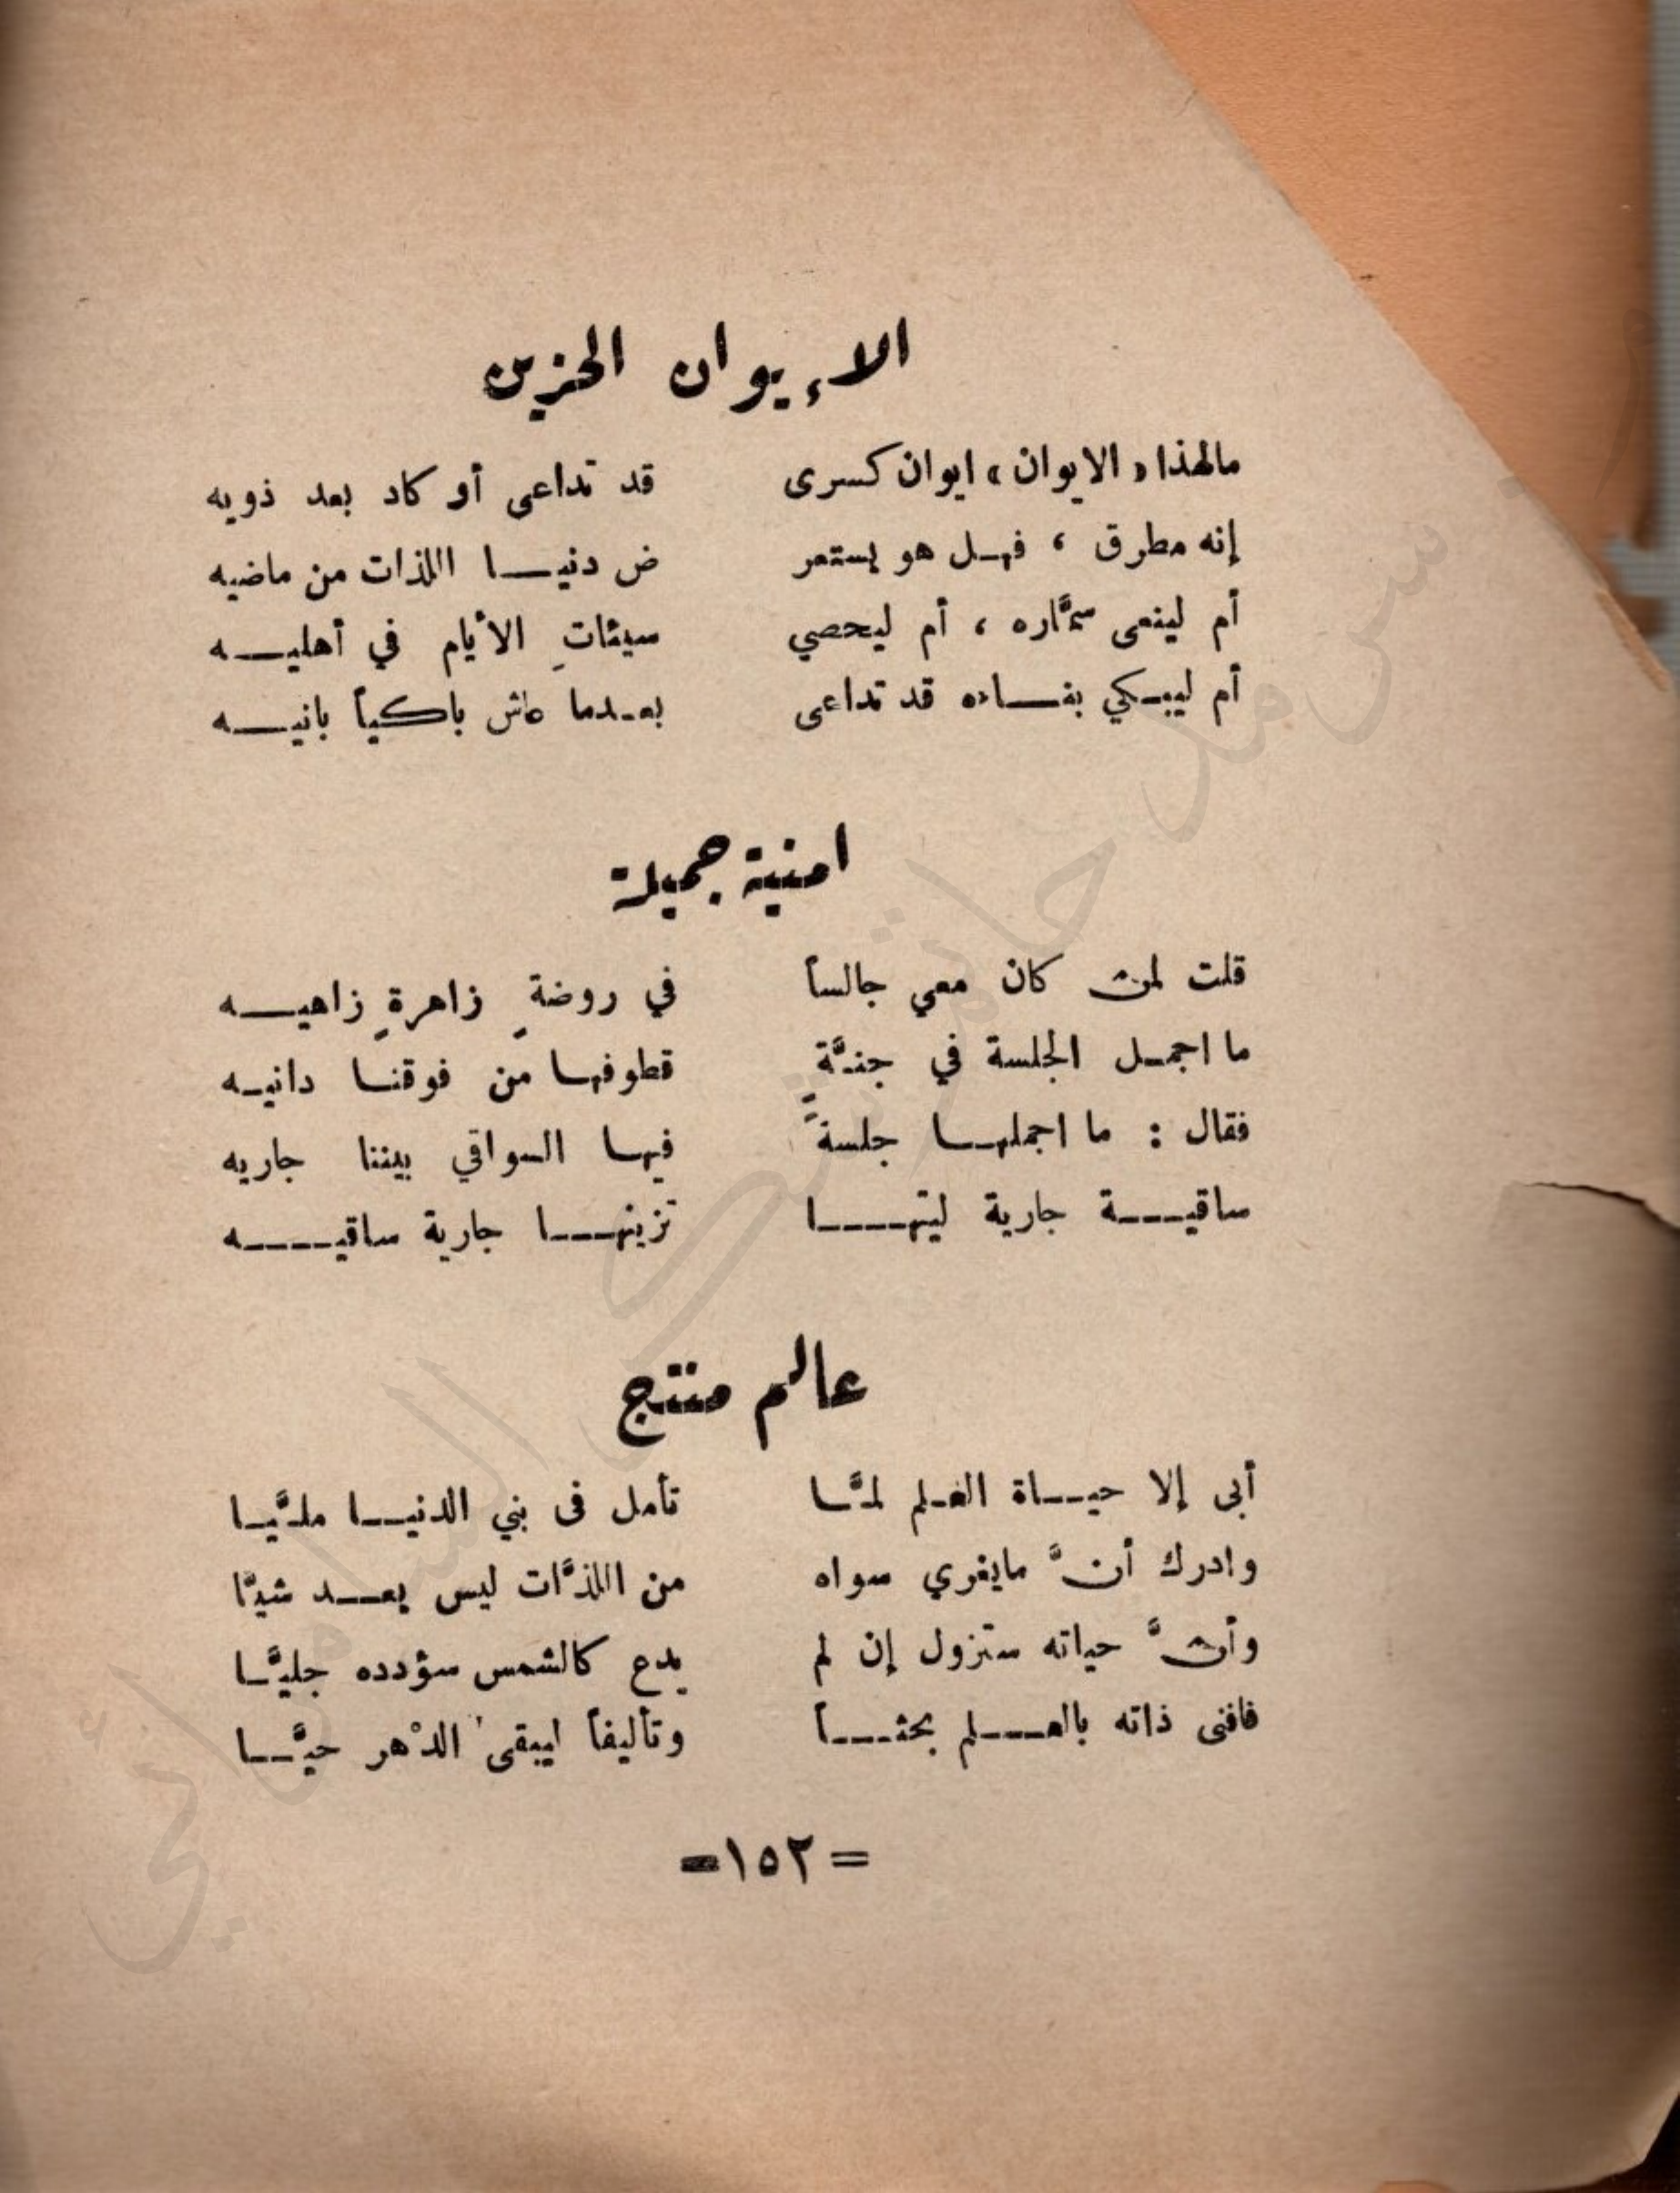 الإيوان الحزين
مالهذا « الايوان » ايوان كسرى قد تداعى أو كاد بعد ذويه
إنه مطرق ، فهل هو يستعر ض دنيا اللذات من ماضيه
أم لينعى سمَّاره ، أم ليحصي سيئاتِ الأيام في أهليه
أم ليبكي بناءه قد تداعى بعدما عاش باكياً بانيه
امنية جميلة
قلت لمن كان معي جالساً في روضةٍ زاهرةٍ زاهيه
ما اجمل الجلسة في جنَّةٍ قطوفها من فوقنا دانيه
فقال : ما اجملها جلسةً فيها السواقي بيننا جاريه
ساقية جارية ليتها تزينها جارية ساقيه
عالم منتج
أبى إلا حياة العلم لمَّا تأمل فى بني الدنيا مليَّا
وادرك أنَّ مايغري سواه من اللذَّات ليس يعد شيَّا
وأنَّ حياته ستزول إن لم يدع كالشمس سؤدده جليَّا
فافنى ذاته بالعلم بحثاً وتأليفاً ليبقى الدهر حيَّا
= ١٥٢ =